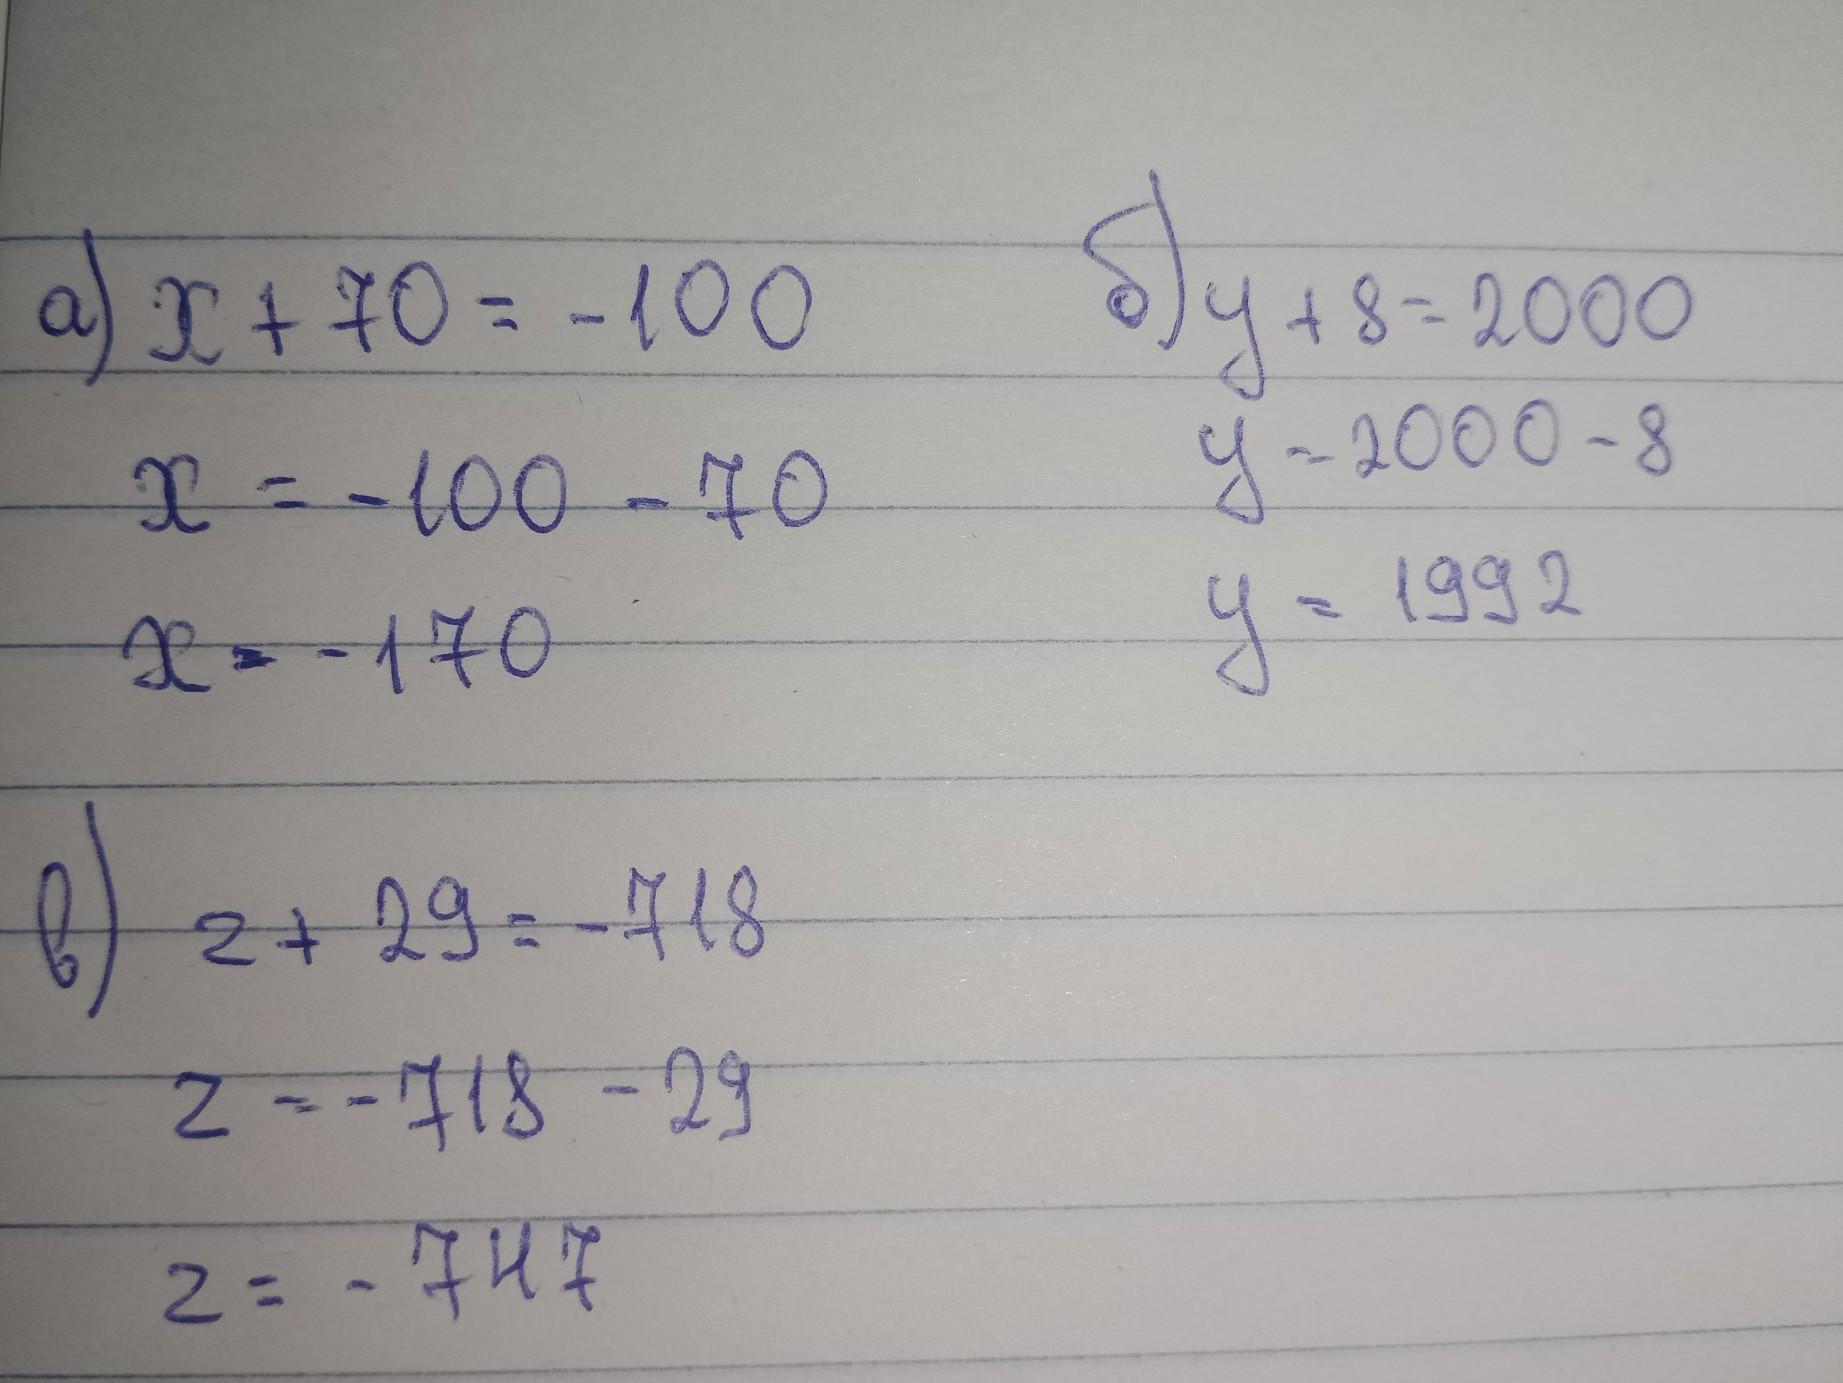 а) x + 70 = -100
x = -100 - 70
x = -170
б) y + 8 = 2000
y = 2000 - 8
y = 1992
в) z + 29 = -718
z = -718 - 29
z = -747